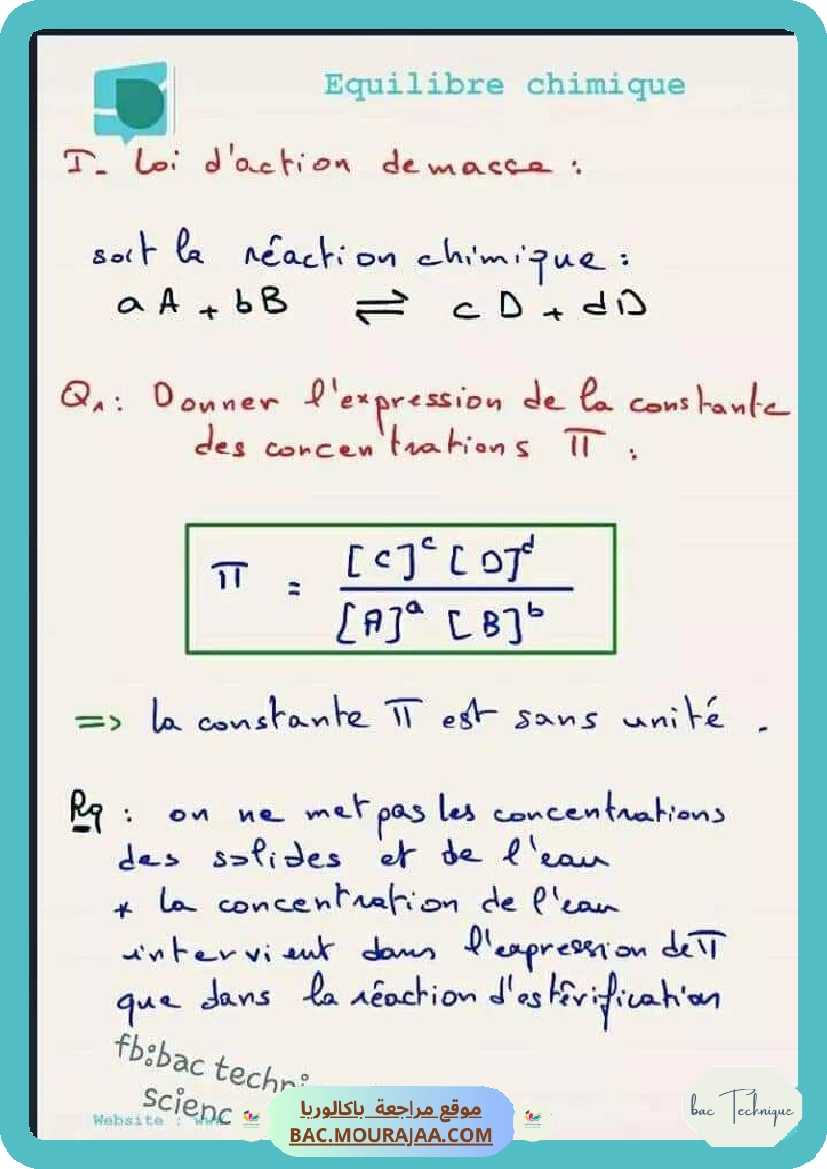 Equilibre chimique
I- Loi d'action de masse :
soit la réaction chimique :
a A + b B ⇌ c D + d D
Q1 : Donner l'expression de la constante
des concentrations π :
π = [C]^c [D]^d / [A]^a [B]^b
=> la constante π est sans unité .
Rq : on ne met pas les concentrations
des solides et de l'eau
* la concentration de l'eau
intervient dans l'expression de π
que dans la réaction d'estérification
fb:bac techni
scienc
Website : www
موقع مراجعة باكالوريا
BAC.MOURAJAA.COM
bac Technique